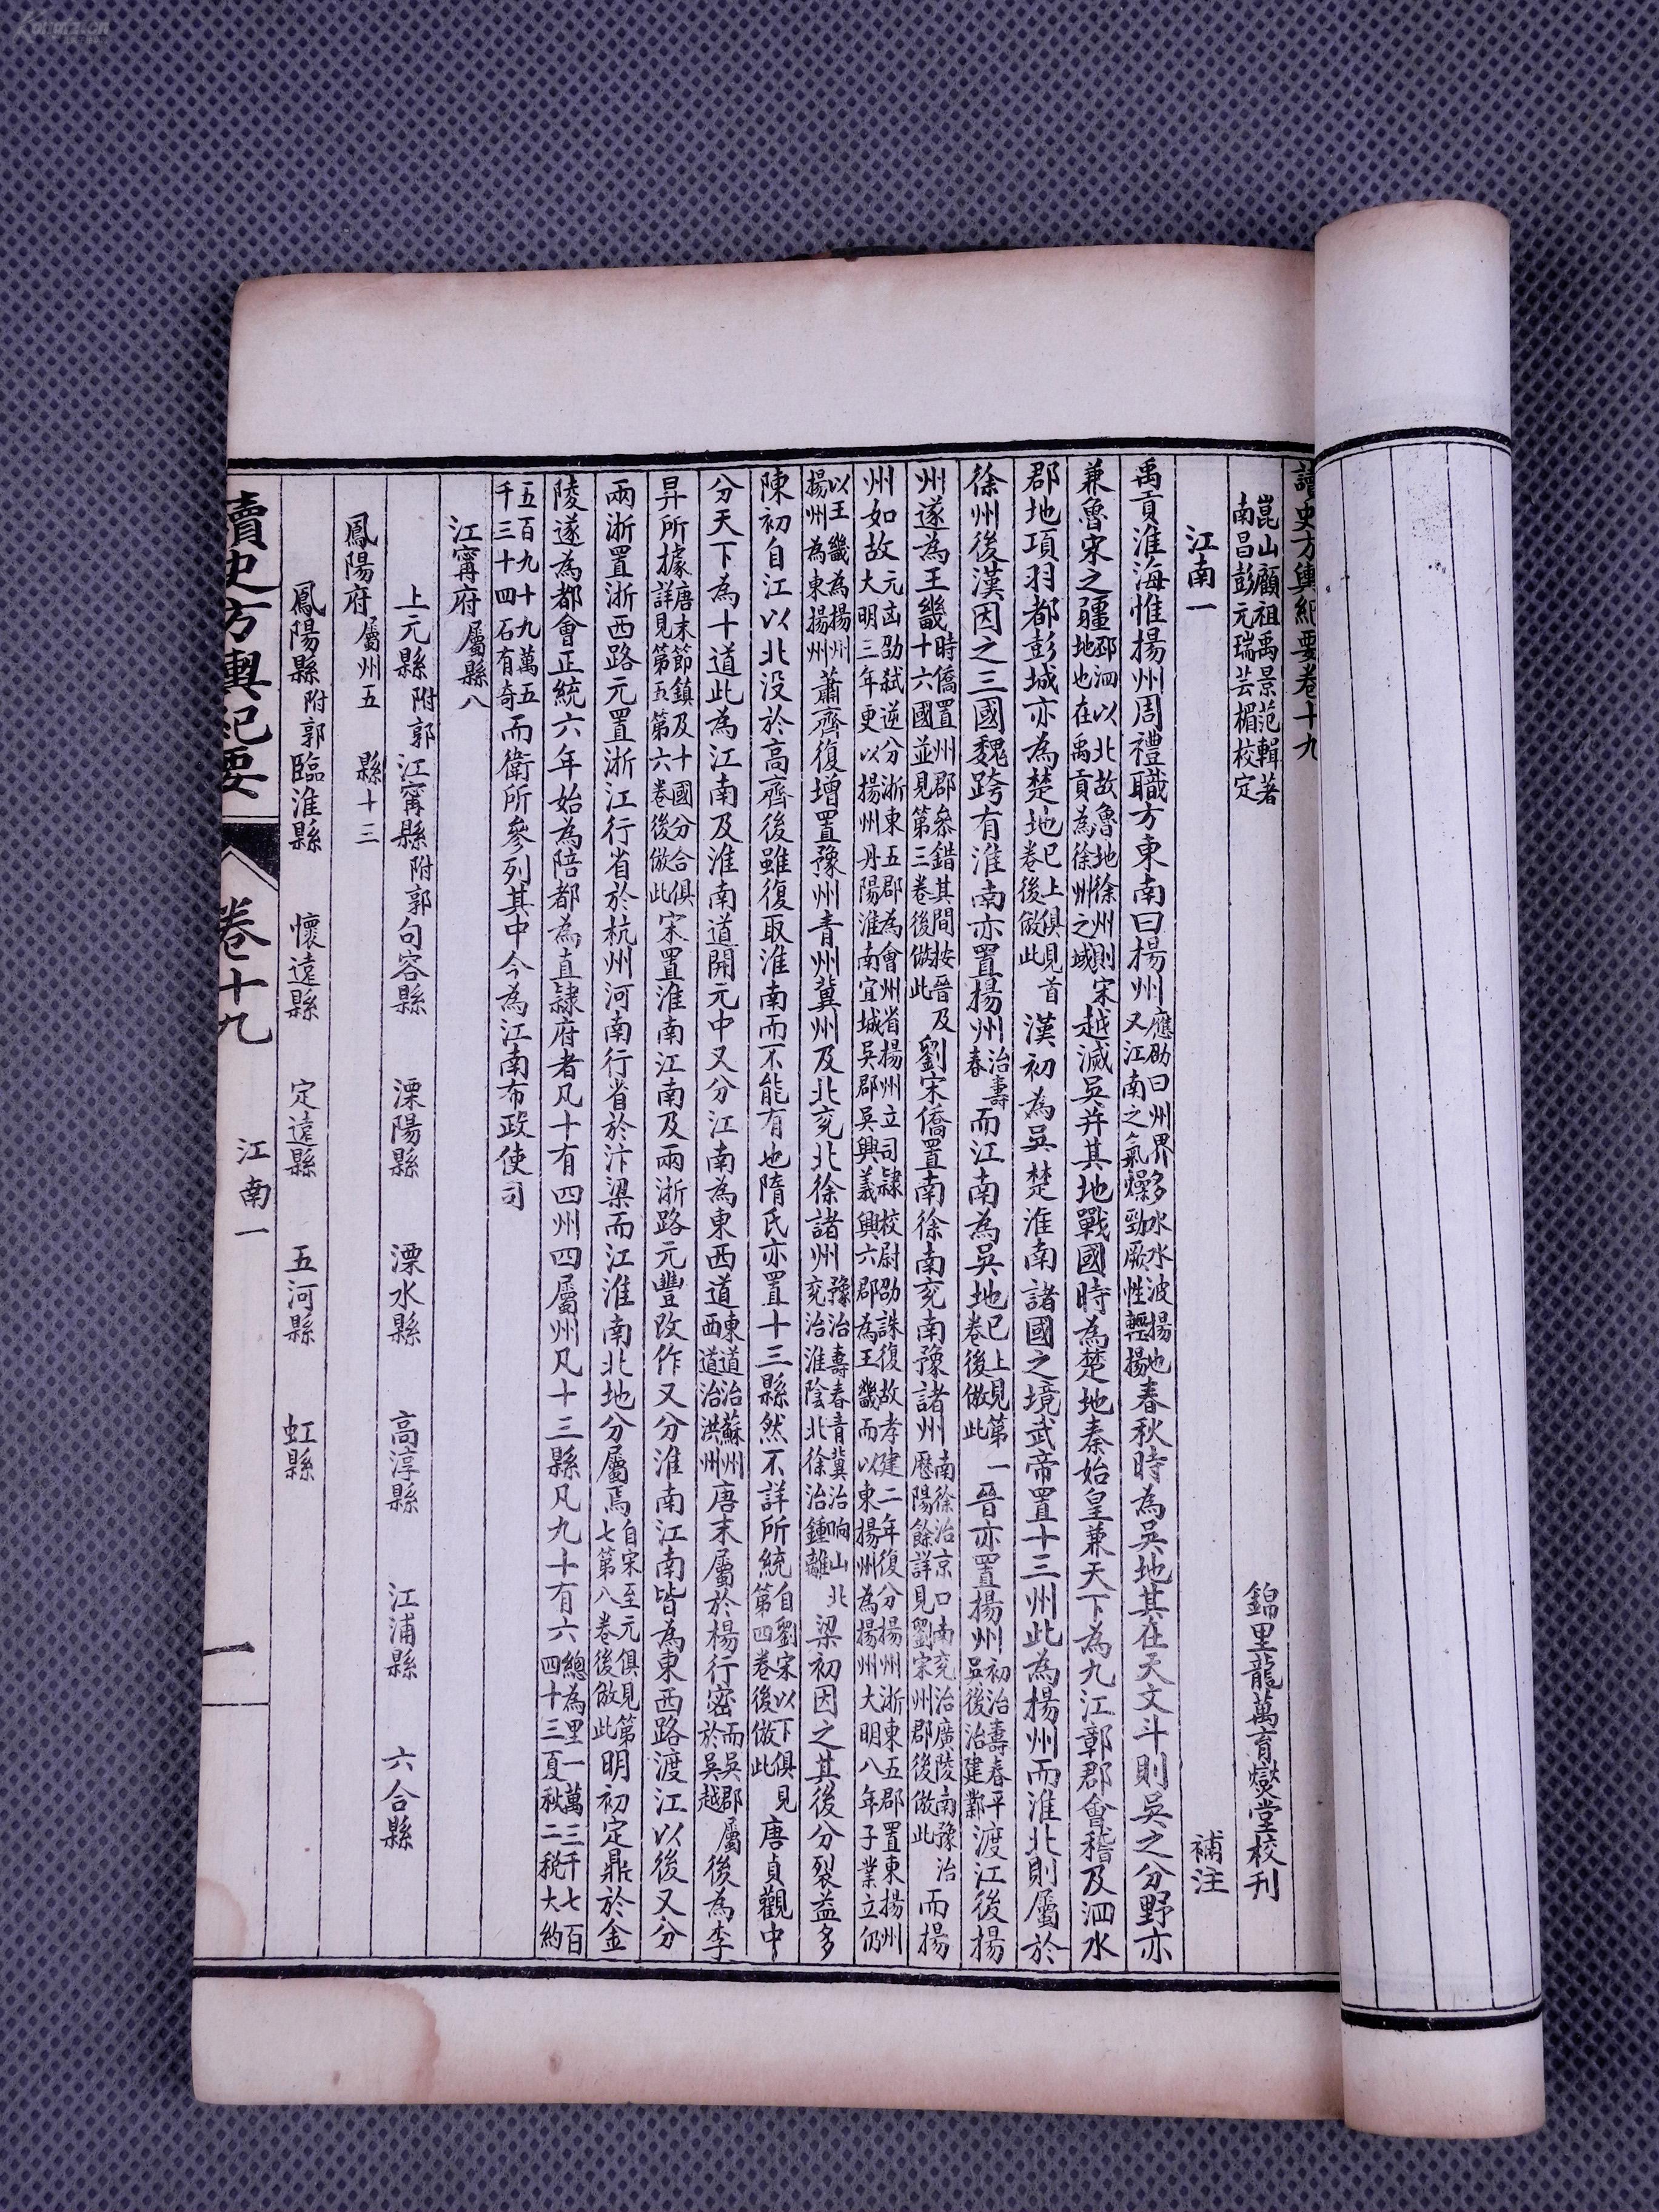 讀史方輿紀要卷十九
崑山顧祖禹景范輯著
南昌彭元瑞芸楣校定
錦里龍萬育燮堂校刊
江南一
補注
禹貢淮海惟揚州周禮職方東南曰揚州應劭曰州界多水水波揚也又江南之氣燥勁厥性輕揚春秋時為吳地其在天文斗則吳之分野亦
兼魯宋之疆邳泗以北故魯地徐州則宋地也在禹貢為徐州之域越滅吳并其地戰國時為楚地秦始皇兼天下為九江鄣郡會稽及泗水
郡地項羽都彭城亦為楚地已上俱見首卷後倣此漢初為吳楚淮南諸國之境武帝置十三州此為揚州而淮北則屬於
徐州後漢因之三國魏跨有淮南亦置揚州治壽春而江南為吳地已上見第一卷後倣此晉亦置揚州初治壽春平吳後治建鄴渡江後揚
州遂為王畿時僑置州郡參錯其間按晉及十六國並見第三卷後倣此劉宋僑置南徐南兖南豫諸州南徐治京口南兖治廣陵南豫治歷陽餘詳見劉宋州郡後倣此而揚
州如故元凶劭弒逆分浙東五郡為會州省揚州立司隷校尉劭誅復故孝建二年復分揚州浙東五郡置東揚州大明三年更以揚州丹陽淮南宜城吳郡吳興義興六郡為王畿而以東揚州為揚州大明八年子業立仍
以王畿為揚州揚州為東揚州蕭齊復增置豫州青州冀州及北兖北徐諸州豫治壽春青冀治朐山北兖治淮陰北徐治鍾離梁初因之其後分裂益多
陳初自江以北没於高齊後雖復取淮南而不能有也隋氏亦置十三縣然不詳所統自劉宋以下俱見第四卷後倣此唐貞觀中
分天下為十道此為江南及淮南道開元中又分江南為東西道東道治蘇州西道治洪州唐末屬於楊行密而吳郡屬於吳越後為李
昇所據唐末節鎮及十國分合俱詳見第五第六卷後倣此宋置淮南江南及兩浙路元豐改作又分淮南江南皆為東西路渡江以後又分
兩浙置浙西路元置浙江行省於杭州河南行省於汴梁而江淮南北地分屬焉自宋至元俱見第七第八卷後倣此明初定鼎於金
陵遂為都會正統六年始為陪都為直隷府者凡十有四州四屬州凡十三縣凡九十有六總為里一萬三千七百四十三夏秋二稅大約
五百九十九萬五千三十四石有奇而衛所參列其中今為江南布政使司
江甯府屬縣八
上元縣附郭江甯縣附郭句容縣 溧陽縣 溧水縣 高淳縣 江浦縣 六合縣
鳳陽府屬州五 縣十三
鳳陽縣附郭臨淮縣 懷遠縣 定遠縣 五河縣 虹縣
讀史方輿紀要 卷十九 江南一 一